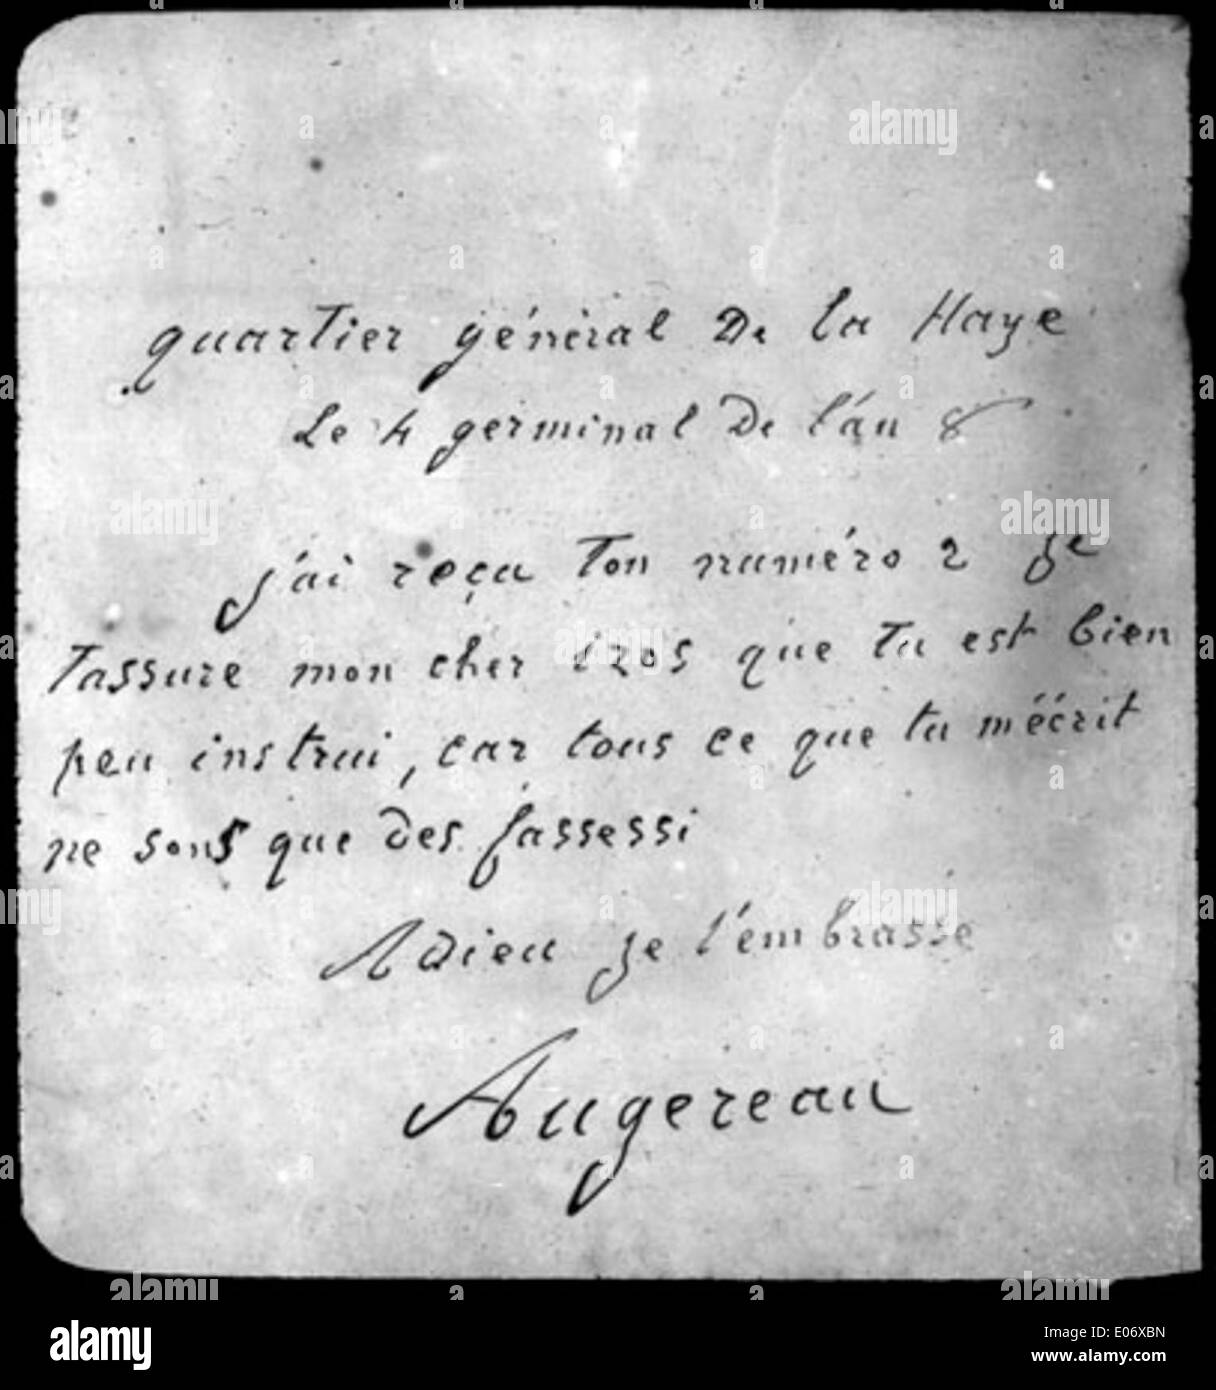 quartier général De la Haye
Le 4 germinal De l'an 8
j'ai reçu ton numéro 2 je
tassure mon cher izos que tu est bien
peu instrui, car tous ce que tu méécrit
ne sons que des fassessi
Adieu je t'embrasse
Augereau
alamy
E06XBN
www.alamy.com